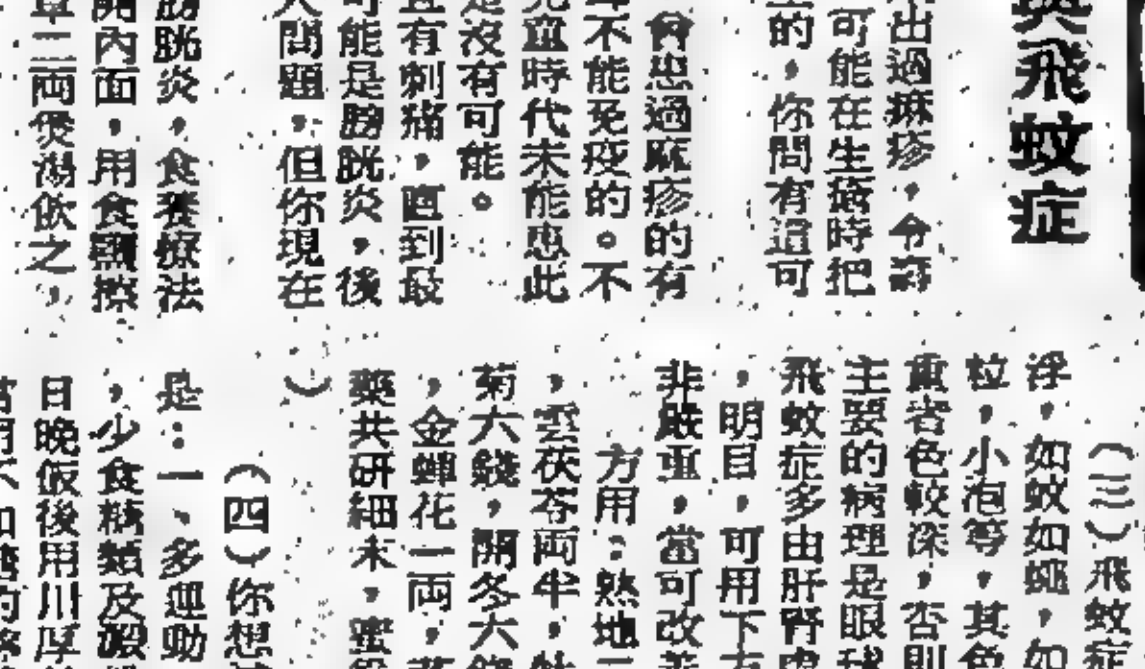 與飛蚊症
出過麻疹,令許
可能在生瘡時把
的,你問有這可
曾患過麻疹的有
不能免疫的。不
兒童時代未能患此
是沒有可能。
且有刺痛,直到最
可能是膀胱炎,後
人問題,但你現在
膀胱炎,食養療法
開內面,用食鹽擦
草二両煲湯飲之,
(三)飛蚊症
浮,如蚊如蠅,如
粒,小泡等,其色
重者色較深,否則
主要的病理是眼球
飛蚊症多由肝腎虛
,明目,可用下方
非嚴重,當可改善
方用:熟地二
,雲茯苓両半,
菊六錢,開冬六錢
,金蟬花一両,
藥共研細末,蜜
)
(四)你想
是:一、多運動
,少食糖類及澱
日晚飯後用川厚